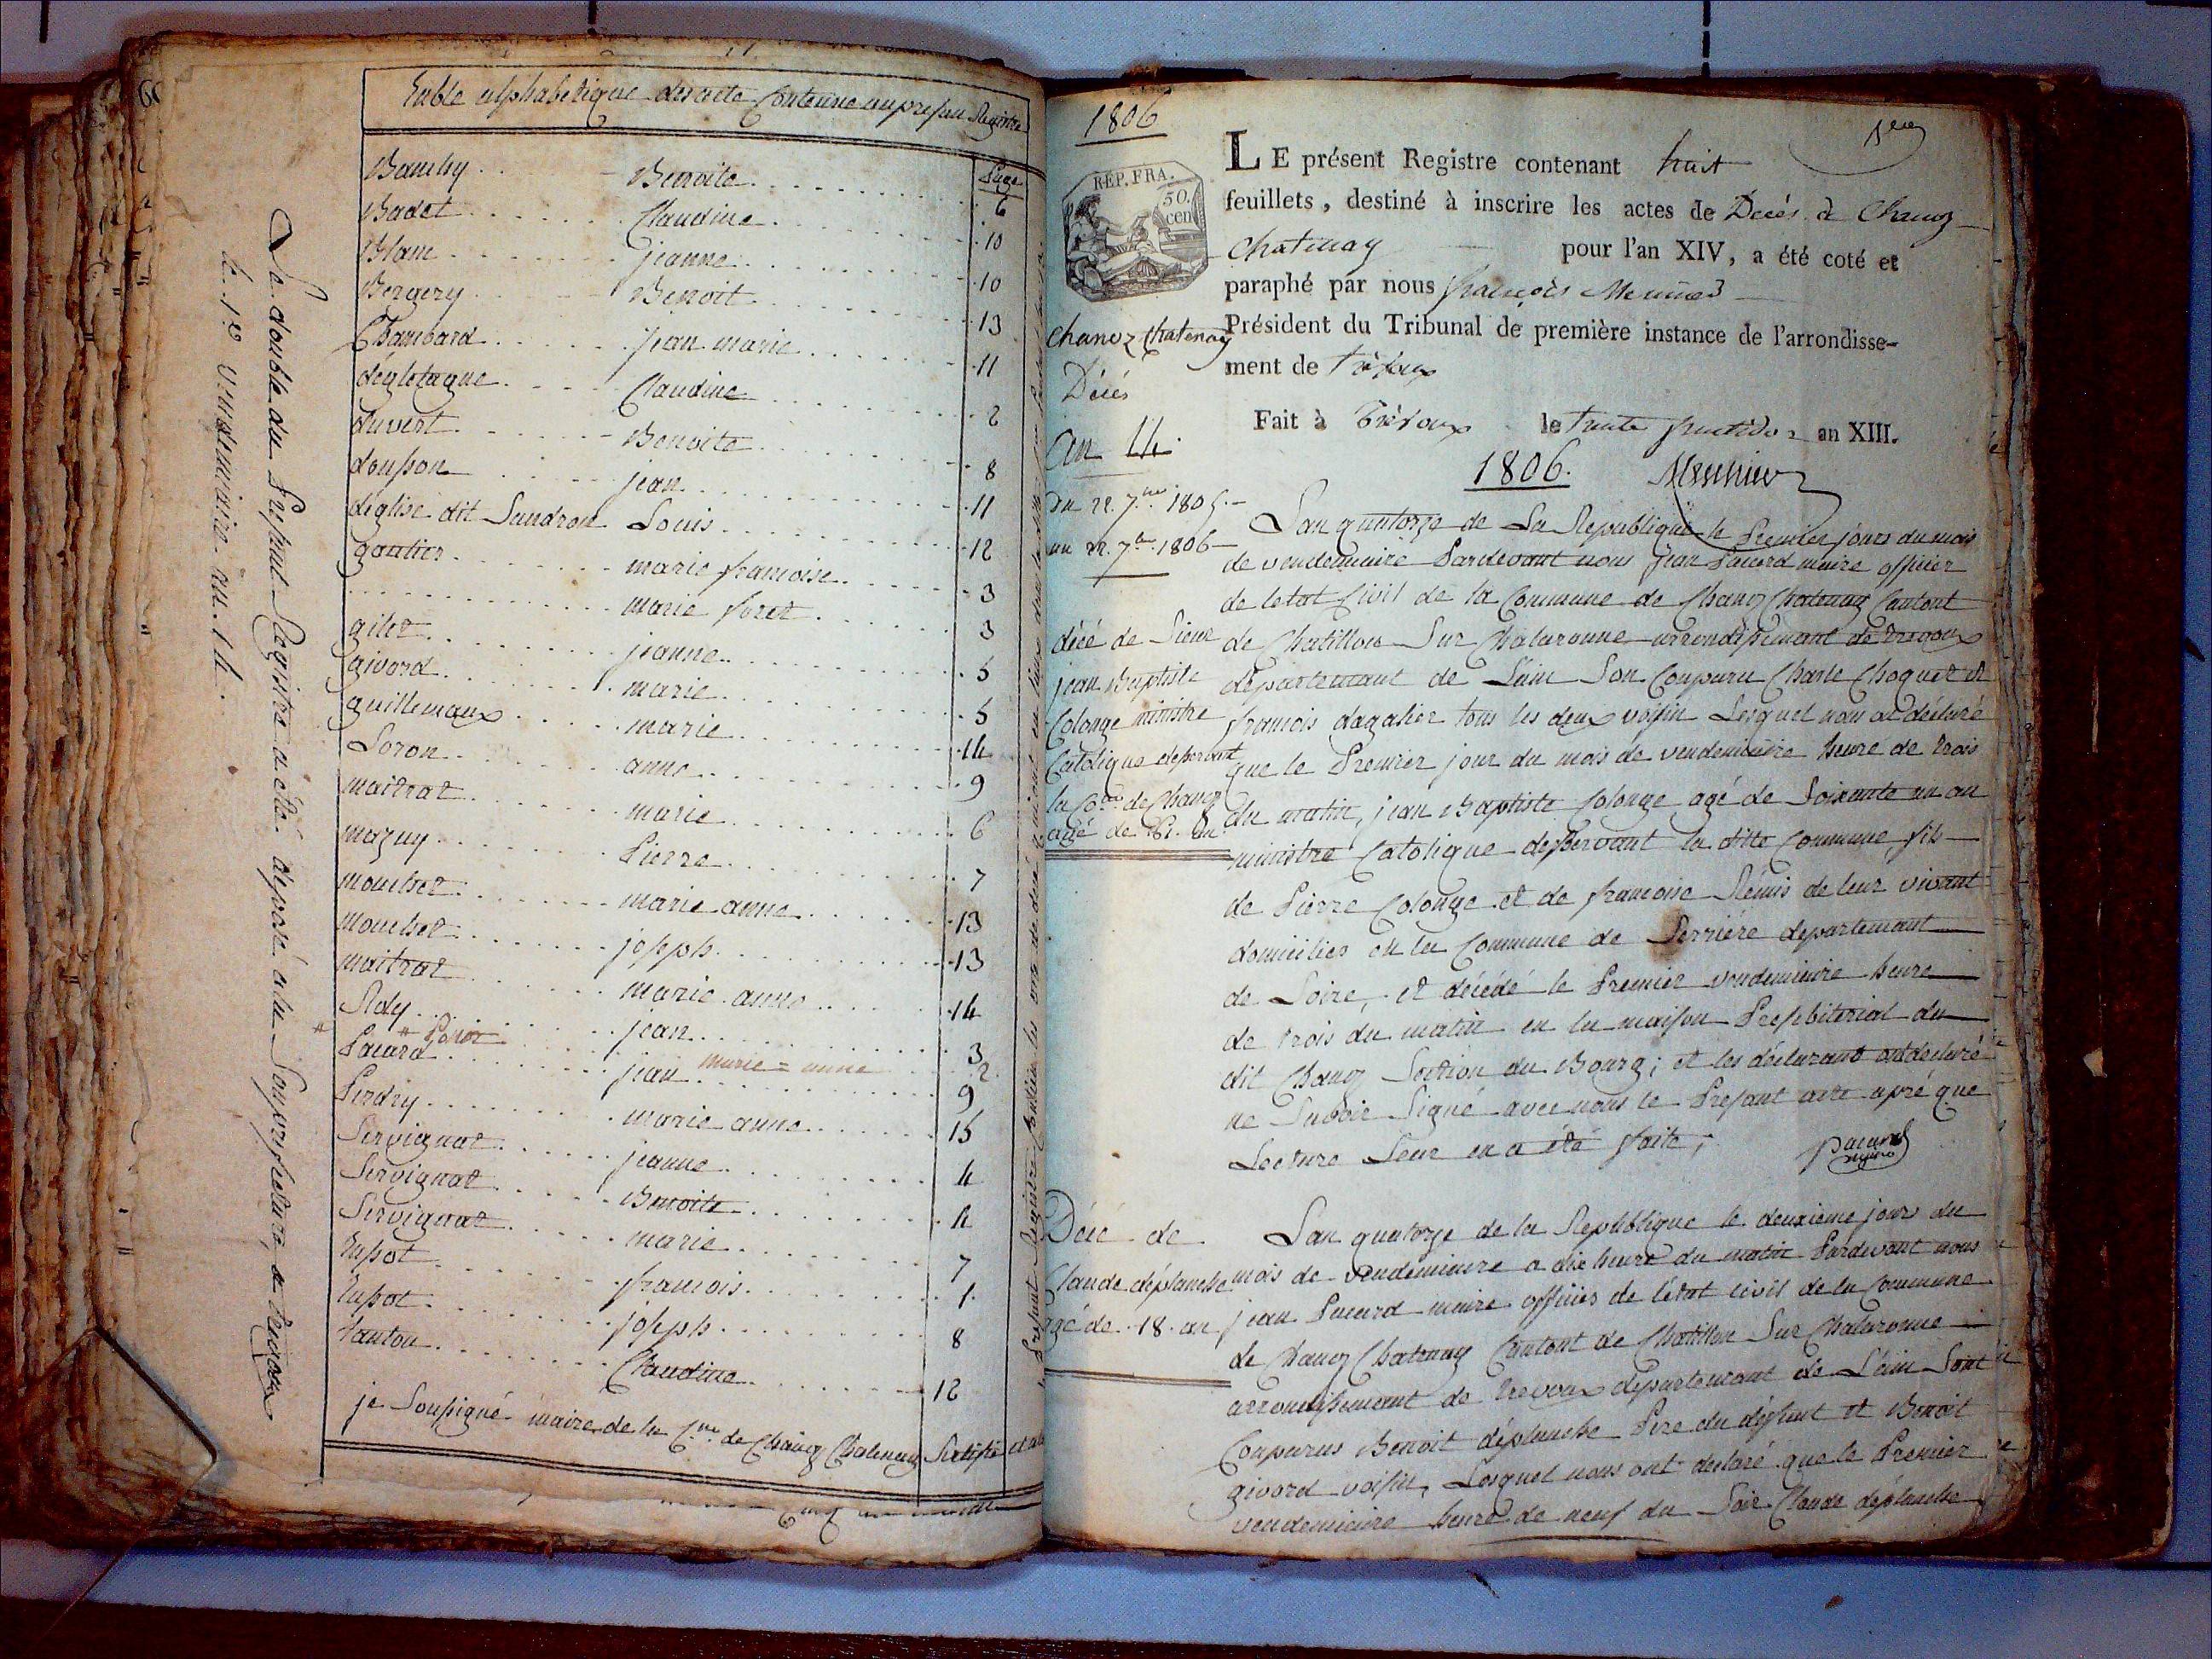 Table alphabetique des acte Contenue au presen Registre
Page
Benoite 6
Badet Claudine 10
Blanc jeanne 10
Bergery Benoit 13
Chambard jean marie 11
Claudine 2
duvert Benoite 8
jean 11
déglise dit Landron Louis 12
gautier marie francoise 3
marie 3
jeanne 5
givord marie 5
guillemaux marie 14
Loron anne 9
maitrat marie 6
mazuy Pierre 7
mouchet marie anne 13
mouchet joseph 13
maitrat marie anne 14
Roly jean 3
marie = anne 2
Pacard jean 9
Perdry marie anne 15
Servignat jeanne 4
Servignat Benoite 4
Servignat marie 7
francois 1
joseph 8
Claudine 12
je Soussigné maire de la Cne de Chanoz Chatenay
Le double du Present Registre a été déposé a la Souspréfecture, a trevoux
le 1er vendemiaire an 14.
1806
1er
REP. FRA.
50.
cen
LE présent Registre contenant huit
feuillets, destiné à inscrire les actes de Décés de Chanoz
Chatenay pour l'an XIV, a été coté et
paraphé par nous françois Meunier
Président du Tribunal de première instance de l'arrondisse-
ment de trévoux
Fait à Trévoux le trente fructidor an XIII.
Chanoz Chatenay
Décés
an 14.
du 22. 7bre 1805.
au 22. 7bre 1806
1806. Meunier
Lan quatorze de La Republique le Premier jours du mois
de vendemiaire Pardevant nous jean Pacard maire officier
de letat Civil de la Commune de Chanoz Chatenay Cantont
de Chatillon Sur Chalaronne arrondisement de trevoux
departemant de Lain Son Comparu Charle Choquet et
francois dagalier tous les deux voisin Lesquel nous ont déclaré
que le Premier jour du mois de vendemiaire heure de trois
du matin, jean Baptiste Colonge agé de Soixante un an
ministre Catolique desservant la ditte Commune fils
de Pierre Colonge et de francoise Rémis de leur vivant
domicilies en la Commune de Perriére departemant
de Loire, et décédé le Premier vendemiaire heure
de trois du matin en la maison Presbiterial du
dit Chanoz Section du Bourg; et les déclarant ont declaré
ne Savoir Signé avec nous le Present acte apré que
Lecture Leur en a été faite;
Pacard
maire
décé de Sieur
jean Baptiste
Colonge ministre
Catolique deservant
la Cne de Chanoz
agé de 61. an
Décé de
Claude déplanche
agé de 18. an
Lan quatorze de la Republique le deuxieme jour du
mois de vendemiaire a dix heure du matin Pardevant nous
jean Pacard maire officier de létat civil de la Commune
de Chanoz Chatenay Cantont de Chatillon Sur Chalaronne
arrondisemant de trevoux departemant de Lain Sont
Comparus Benoit déplanche Pere du défunt et Benoit
givord voisin, Lesquel nous ont declaré que le Premier
vendemiaire heure de neuf du Soir Claude déplanche